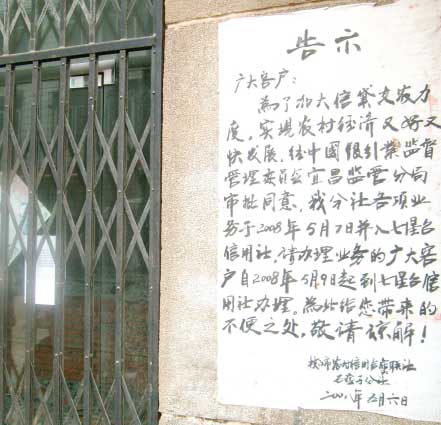 告示
广大客户:
為了加大信贷支农力
度,实现农村经济又好又
快发展,经中國银引業监督
管理委员会宜昌监管分局
审批同意,我分社各项业
务于2008年5月7日并入七星台
信用社,请办理业务的广大客
户自2008年5月9日起到七星台信
用社办理。為此给您带来的
不便之处,敬请谅解!
农村信用合作联社
分社